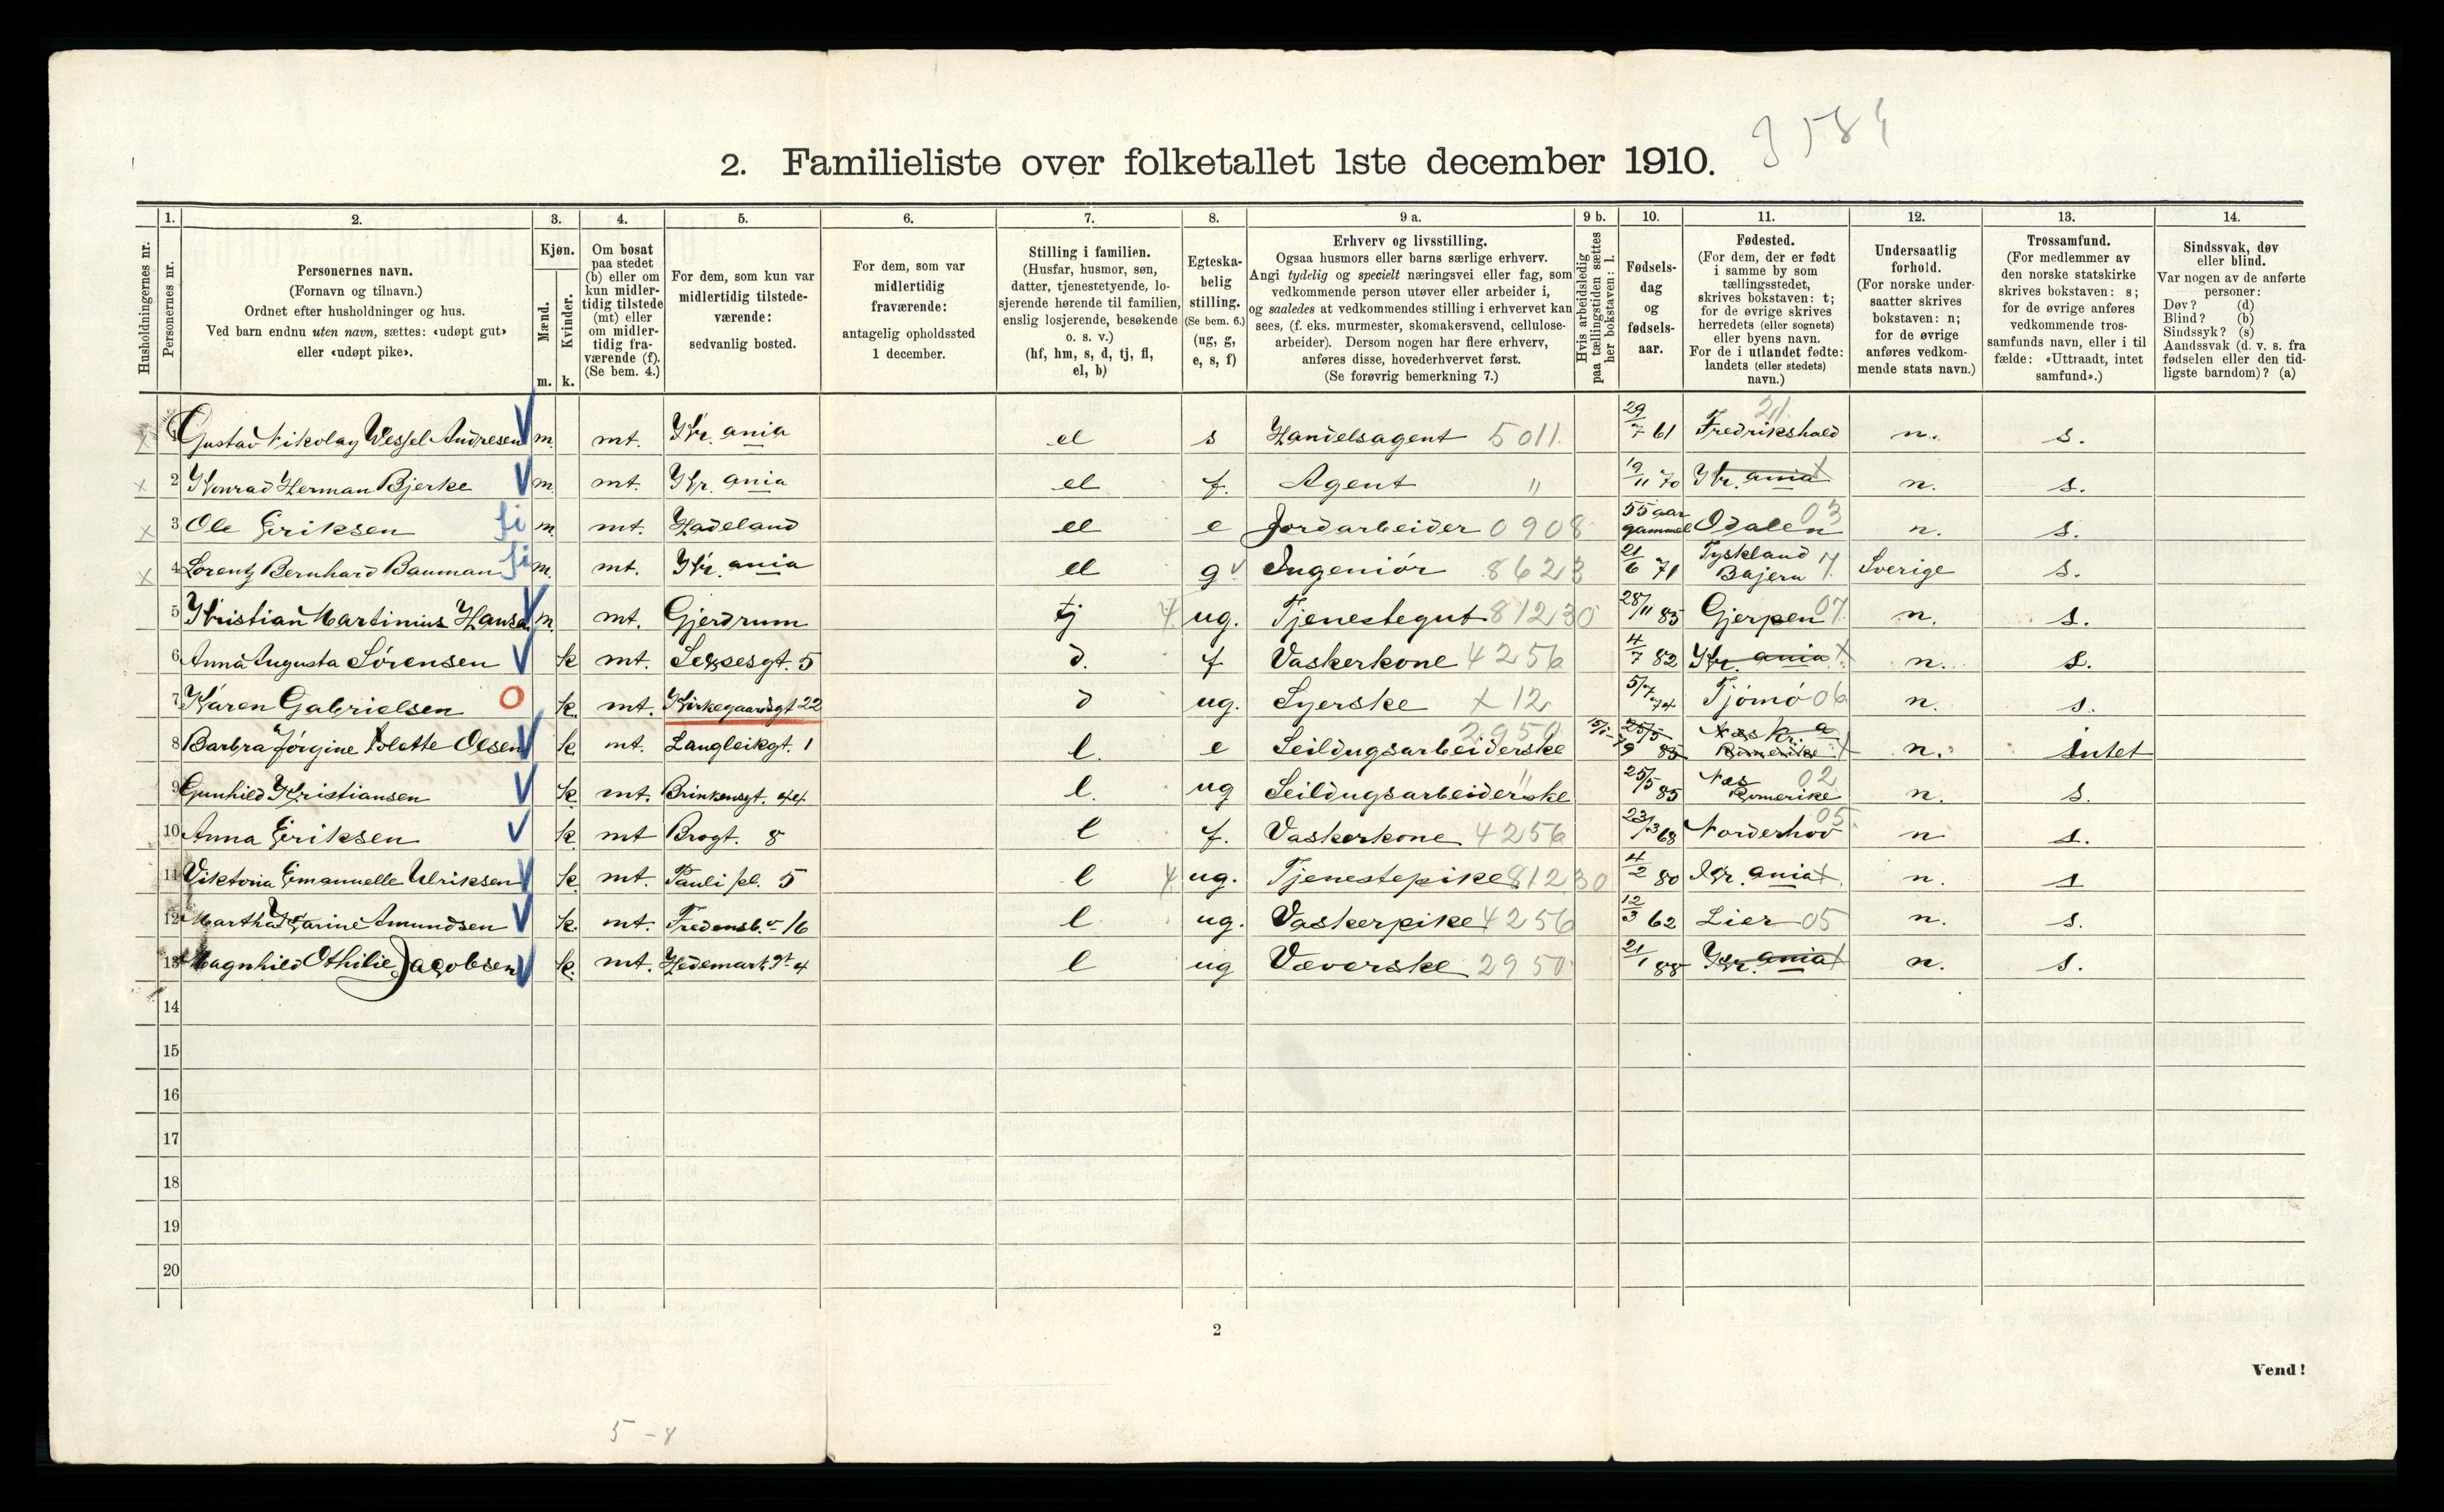 3584
2. Familieliste over folketallet 1ste december 1910.
Husholdningernes nr.
1.
Personernes nr.
2.
Personernes navn.
(Fornavn og tilnavn.)
Ordnet efter husholdninger og hus.
Ved barn endnu uten navn, sættes: «udøpt gut»
eller «udøpt pike».
3.
Kjøn.
Mænd.
Kvinder.
m. k.
4.
Om bosat
paa stedet
(b) eller om
kun midler-
tidig tilstede
(mt) eller
om midler-
tidig fra-
værende (f).
(Se bem. 4.)
5.
For dem, som kun var
midlertidig tilstede-
værende:
sedvanlig bosted.
6.
For dem, som var
midlertidig
fraværende:
antagelig opholdssted
1 december.
7.
Stilling i familien.
(Husfar, husmor, søn,
datter, tjenestetyende, lo-
sjerende hørende til familien,
enslig losjerende, besøkende
o. s. v.)
(hf, hm, s, d, tj, fl,
el, b)
8.
Egteska-
belig
stilling.
(Se bem. 6.)
(ug, g,
e, s, f)
9 a.
Erhverv og livsstilling.
Ogsaa husmors eller barns særlige erhverv.
Angi tydelig og specielt næringsvei eller fag, som
vedkommende person utøver eller arbeider i,
og saaledes at vedkommendes stilling i erhvervet kan
sees, (f. eks. murmester, skomakersvend, cellulose-
arbeider). Dersom nogen har flere erhverv,
anføres disse, hovederhvervet først.
(Se forøvrig bemerkning 7.)
9 b.
Hvis arbeidsledig
paa tællingstiden sættes
her bokstaven: l.
10.
Fødsels-
dag
og
fødsels-
aar.
11.
Fødested.
(For dem, der er født
i samme by som
tællingsstedet,
skrives bokstaven: t;
for de øvrige skrives
herredets (eller sognets)
eller byens navn.
For de i utlandet fødte:
landets (eller stedets)
navn.)
12.
Undersaatlig
forhold.
(For norske under-
saatter skrives
bokstaven: n;
for de øvrige
anføres vedkom-
mende stats navn.)
13.
Trossamfund.
(For medlemmer av
den norske statskirke
skrives bokstaven: s;
for de øvrige anføres
vedkommende tros-
samfunds navn, eller i til
fælde: «Uttraadt, intet
samfund».)
14.
Sindssvak, døv
eller blind.
Var nogen av de anførte
personer:
Døv? (d)
Blind? (b)
Sindssyk? (s)
Aandssvak (d. v. s. fra
fødselen eller den tid-
ligste barndom)? (a)
Gustav Nikolay Wessel Andresen m. mt. Kr. ania el s Handelsagent 5011. 29/7 61 Fredrikshald 211. n. s.
2 Konrad Herman Bjerke m. mt. Kr. ania el f. Agent " 19/11 70 Kr. ania n. s.
3 Ole Eriksen fi m. mt. Hadeland el e Jordarbeider 0908 55 aar gammel Odalen 03 n. s.
4 Lorentz Bernhard Bauman fi m. mt. Kr. ania el g Ingeniör 8623 21/6 71 Tyskland Bajern 7. Sverige s.
5 Kristian Martinius Hansen m. mt. Gjerdrum tj 4 ug. Tjenestegut 81230 28/11 85 Gjerpen 07. n. s.
6 Anna Augusta Sörensen k mt. Sexesgt. 5 d. f Vaskerkone 4256 4/7 82 Kr. ania n. s.
7 Karen Gabrielsen k. mt. Kirkegaardsgt 22 d ug. Syerske X 12 5/7 74 Tjömö 06 n. s.
8 Barbra Jörgine Olsen k mt. Langleikgt. 1 l. e Seildugsarbeiderske 2950 n. intet
9 Gunhild Kristiansen k mt. Brinkensgt. 44 l. ug Seildugsarbeiderske " 25/5 85 Næs Romerike 02 n. s.
10 Anna Eriksen k. mt Brogt. 8 l f. Vaskerkone 4256 23/3 68 Norderhov 05 n s.
11 Viktoria Emanuelle Ulriksen k. mt. Pauli pl. 5 l 4 ug. Tjenestepike 81230 4/2 80 Kr. ania n. s
12 Martha Karine Amundsen k. mt. Fredensb.v 16 l ug. Vaskerpike 4256 12/3 62 Lier 05 n. s.
13 Magnhild Othilie Jacobsen k. mt. Hedemark.gt 4 l ug Væverske 2950 21/1 88 Kr. ania n. s.
14
15
16
17
18
19
20
2
Vend!
5-8